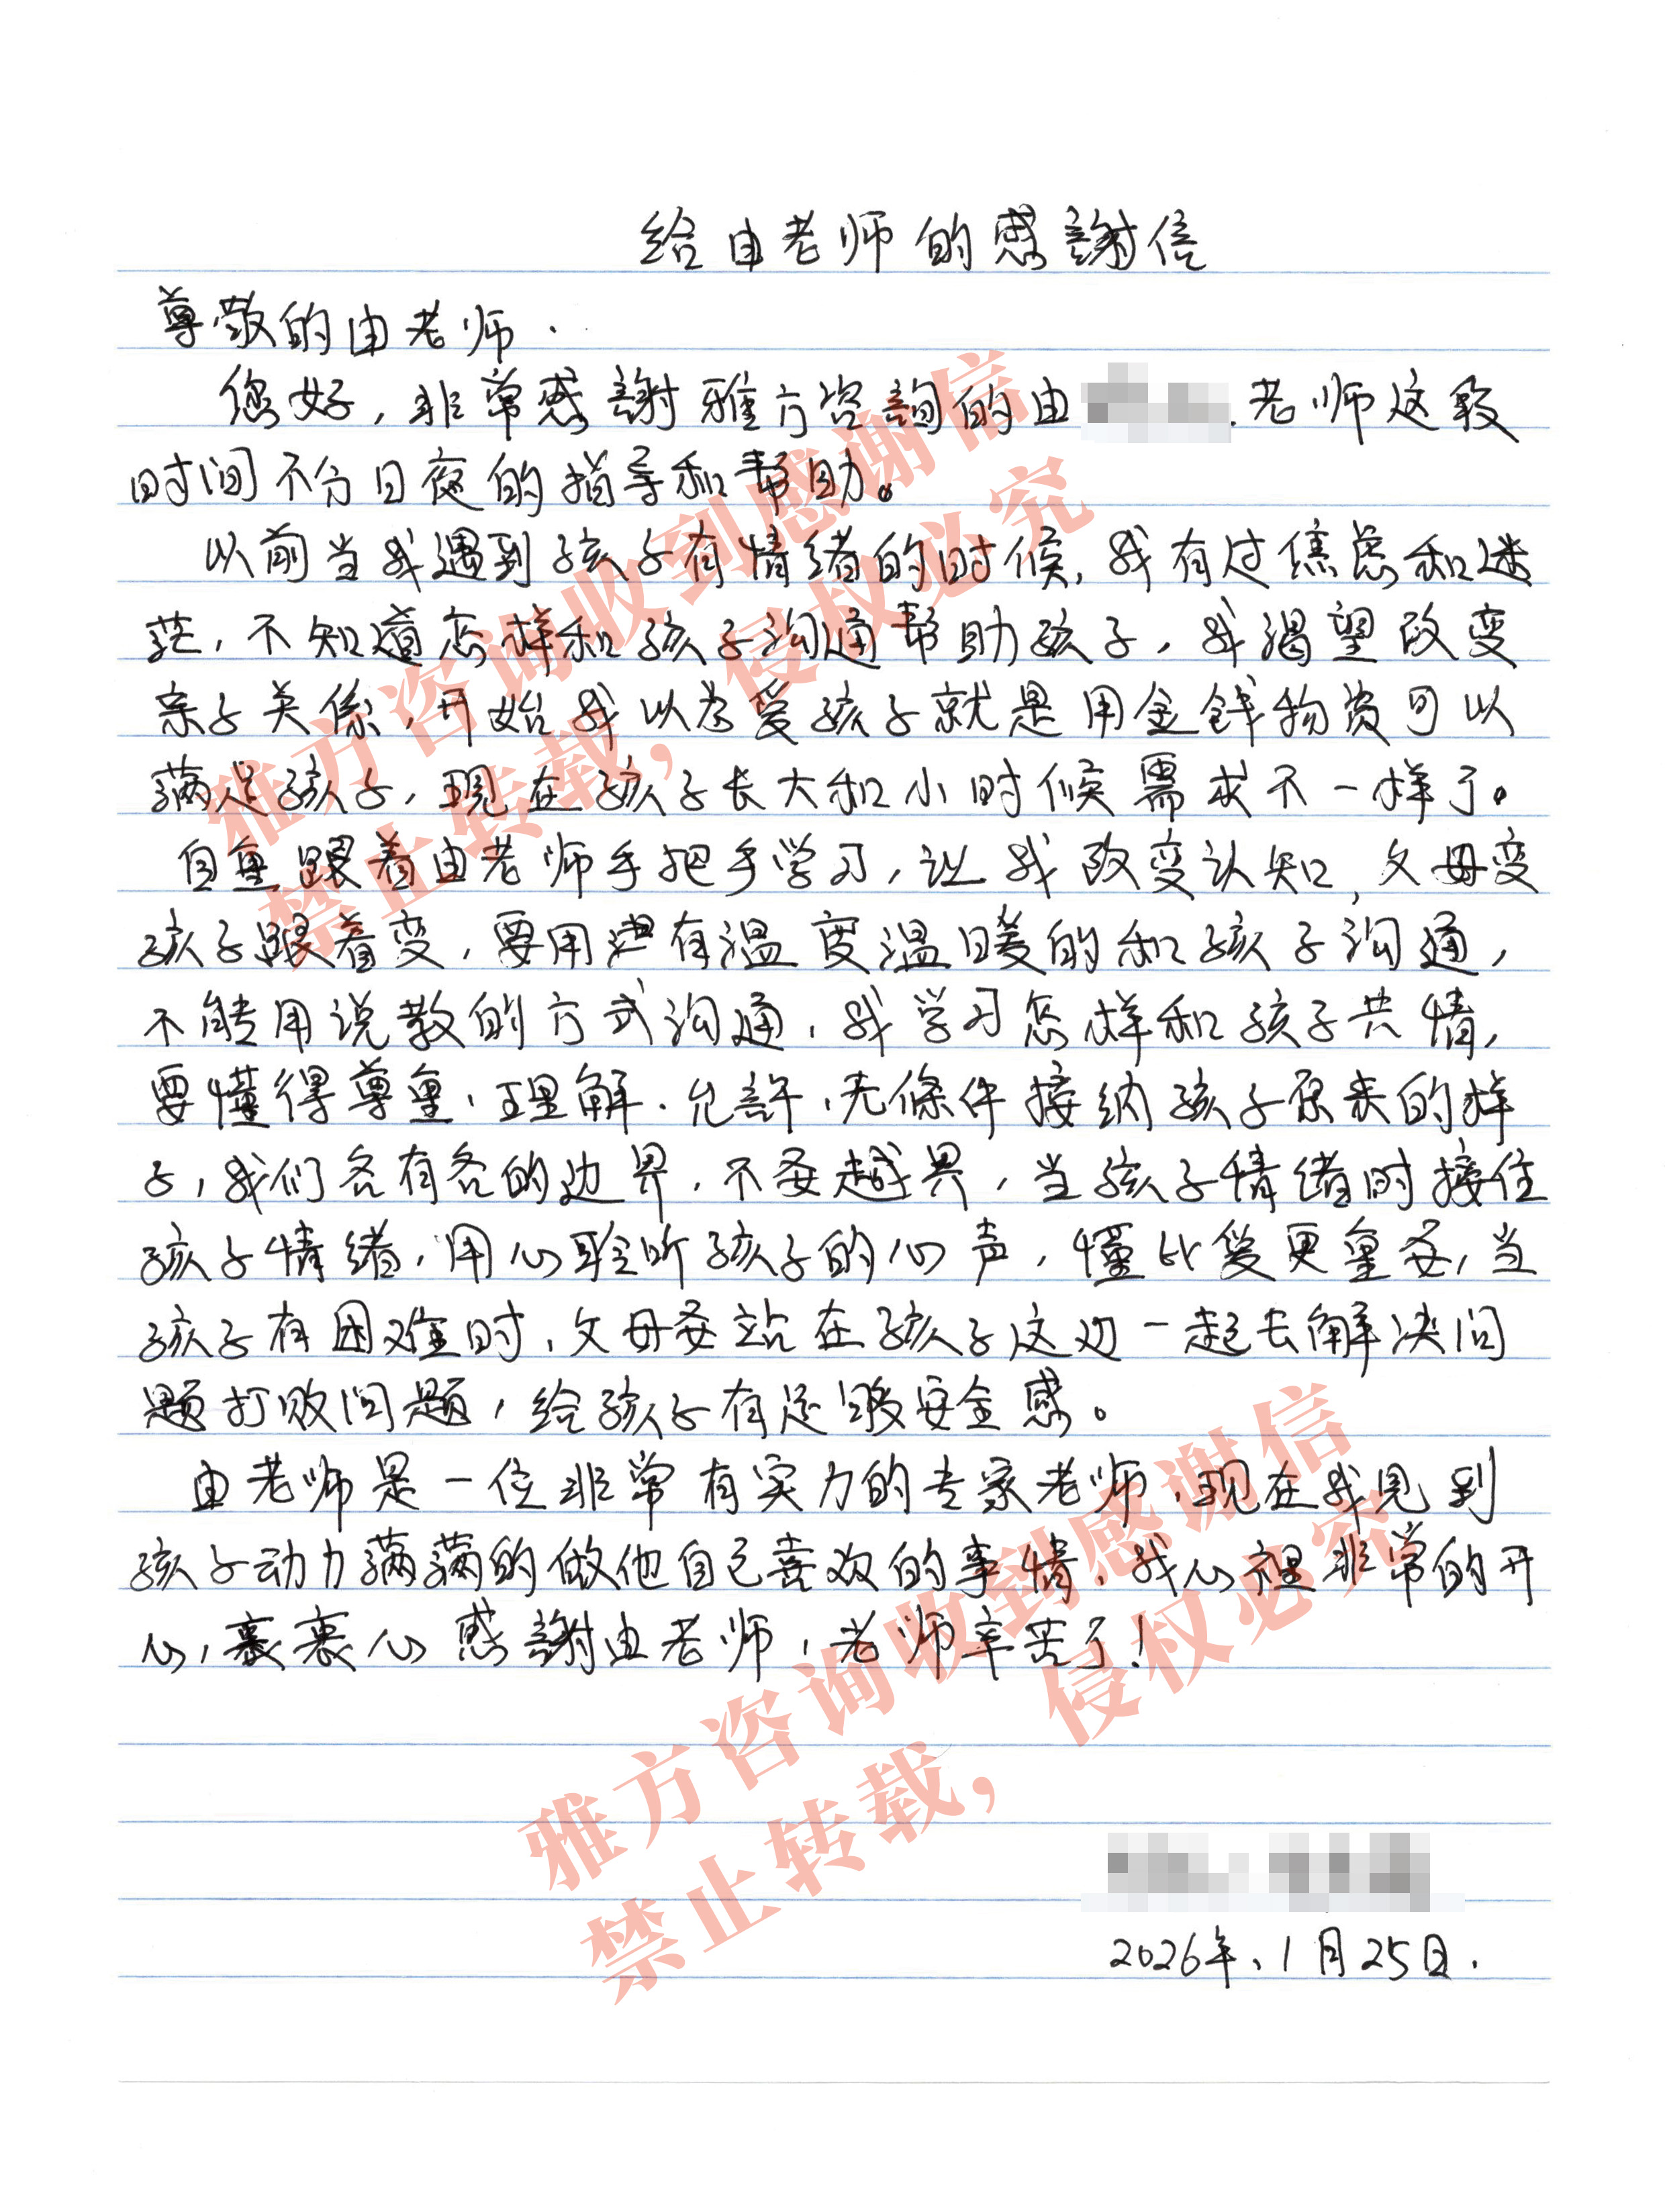 给由老师的感謝信
尊敬的由老师.
您好,非常感謝雅方咨詢的由 老师这段
时间不分日夜的指导和帮助。
以前当我遇到孩子有情绪的时候,我有过焦虑和迷
茫,不知道怎样和孩子沟通帮助孩子,我渴望改变
亲子关係,开始我以为爱孩子就是用金錢物资可以
满足孩子,现在孩子长大和小时候需求不一样了。
自重跟着由老师手把手学习,让我改变认知,父母变
孩子跟着变,要用 有溫度溫暖的和孩子沟通,
不能用说教的方式沟通,我学习怎样和孩子共情,
要懂得尊重、理解、允許、无條件接纳孩子原来的样
子,我们各有各的边界,不要越界,当孩子情绪时接住
孩子情绪,用心聆听孩子的心声,懂比爱更重要,当
孩子有困难时,父母要站在孩子这边一起去解决问
题打败问题,给孩子有足够安全感。
由老师是一位非常有实力的专家老师,现在我見到
孩子动力满满的做他自己喜欢的事情,我心裡非常的开
心,衷衷心感謝由老师,老师辛苦了!
2026年、1月25日.
雅方咨询收到感谢信
禁止转载,侵权必究
雅方咨询收到感谢信
禁止转载,侵权必究